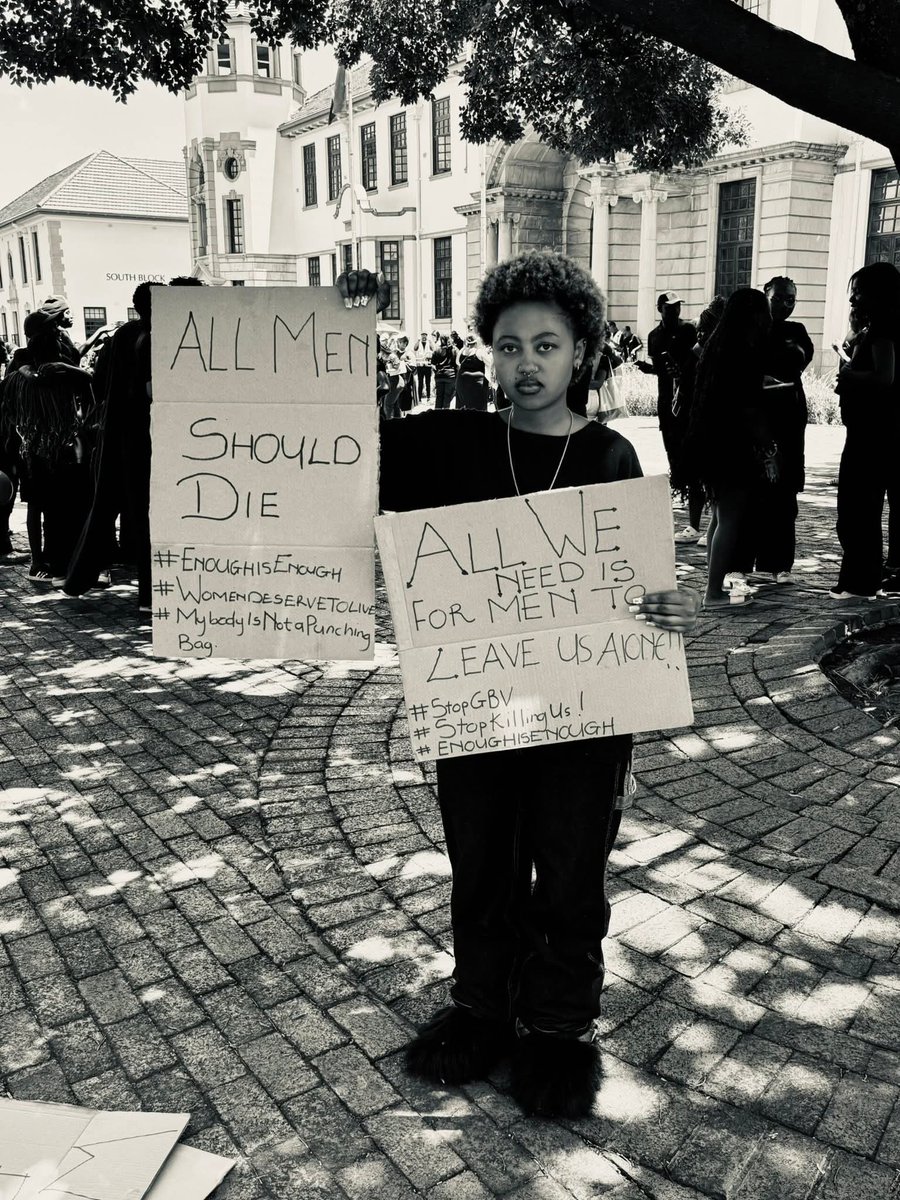 SOUTH BLOCK
ALL MEN
SHOULD
DIE
#ENOUGHISENOUGH
#WOMENDESERVETOLIVE
#MybodyIsNotaPunching
Bag.
ALL WE
NEED IS
FOR MEN TO
LEAVE US AlONE!!
#StopGBV
#StopKillingUs!
#ENOUGHISENOUGH